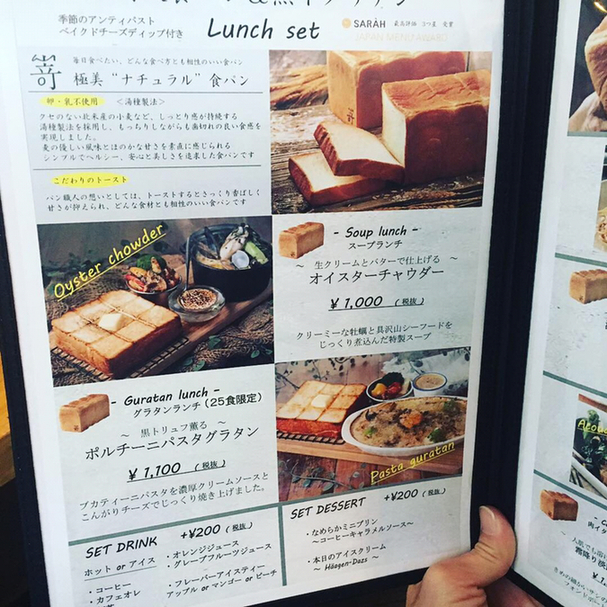 季節のアンティパスト
ベイクドチーズディップ付き
Lunch set
SARAH
最高評価 3つ星 受賞
JAPAN MENU AWARD
嵜
毎日食べたい、どんな食べきとも相性のいい食パン
極美“ナチュラル”食パン
卵・乳不使用 <湯種製法>
クセのない北米産の小麦など、しっとり感が持続する
湯種製法を採用し、もっちりしながらも歯切れの良い食感を
実現しました。
麦の優しい風味とほのかな甘さを素直に感じられる
シンプルでヘルシー、安心と美しさを追求した食パンです
こだわりのトースト
パン職人の想いとしては、トーストするとさっくり香ばしく
甘さが抑えられ、どんな食材とも相性のいい食パンです
Oyster chowder
- Soup lunch -
スープランチ
~ 生クリームとバターで仕上げる ~
オイスターチャウダー
¥1,000 (税抜)
クリーミーな牡蠣と具沢山シーフードを
じっくり煮込んだ特製スープ
- Guratan lunch -
グラタンランチ(25食限定)
~ 黒トリュフ薫る ~
ポルチーニパスタグラタン
¥1,100 (税抜)
ブカティーニパスタを濃厚クリームソースと
こんがりチーズでじっくり焼き上げました。
Pasta guratan
SET DRINK +¥200 (税抜)
ホット or アイス
・コーヒー
・カフェオレ
・オレンジジュース
・グレープフルーツジュース
・フレーバーアイスティー
アップル or マンゴー or ピーチ
SET DESSERT +¥200 (税抜)
・なめらかミニプリン
~コーヒーキャラメルソース~
・本日のアイスクリーム
~ Häagen-Dazs ~